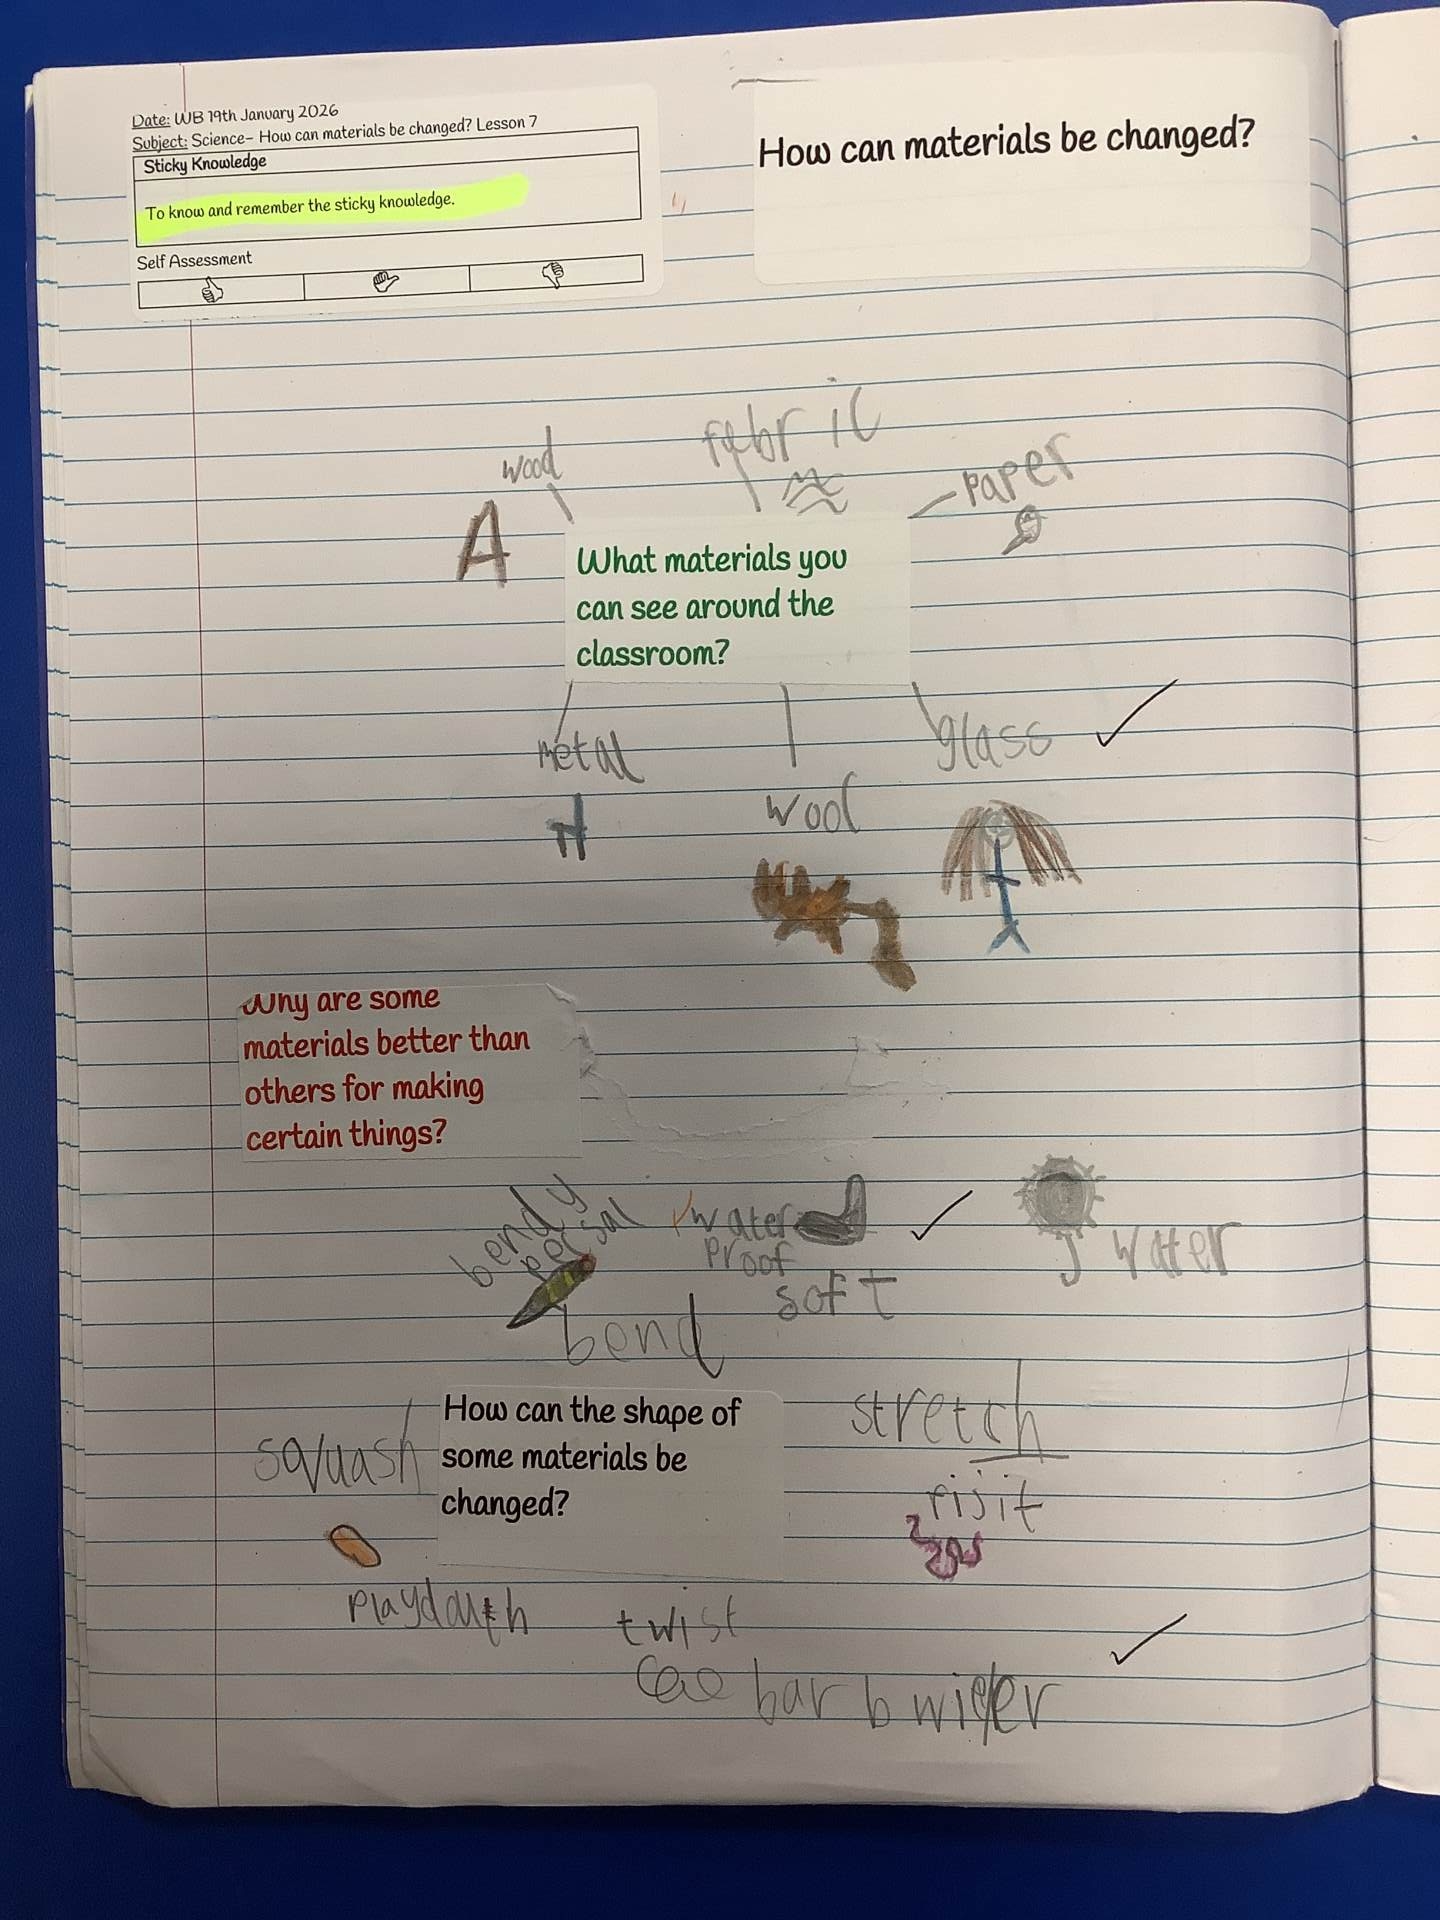 Date: WB 19th January 2026
Subject: Science- How can materials be changed? Lesson 7
Sticky Knowledge
To know and remember the sticky knowledge.
Self Assessment
How can materials be changed?
wood
fabric
paper
What materials you
can see around the
classroom?
metal
wool
glass
Why are some
materials better than
others for making
certain things?
bendy
persal
water
proof
soft
water
bend
How can the shape of
some materials be
changed?
squash
stretch
rijit
playdauth
twist
barb wier